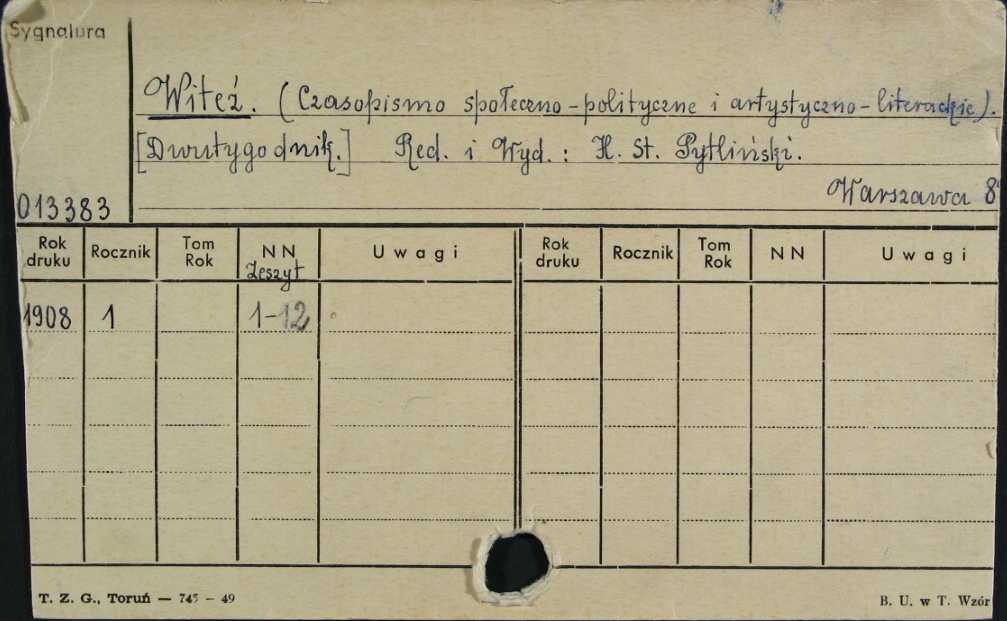 Sygnalura
Witeź. (Czasopismo społeczno-polityczne i artystyczno-literackie).
[Dwutygodnik.] Red. i Wyd.: H. St. Pytliński.
Warszawa 8°
013383
Rok druku Rocznik Tom Rok NN Zeszyt Uwagi Rok druku Rocznik Tom Rok NN Uwagi
1908 1 1-12
T. Z. G., Toruń — 745 – 49 B. U. w T. Wzór